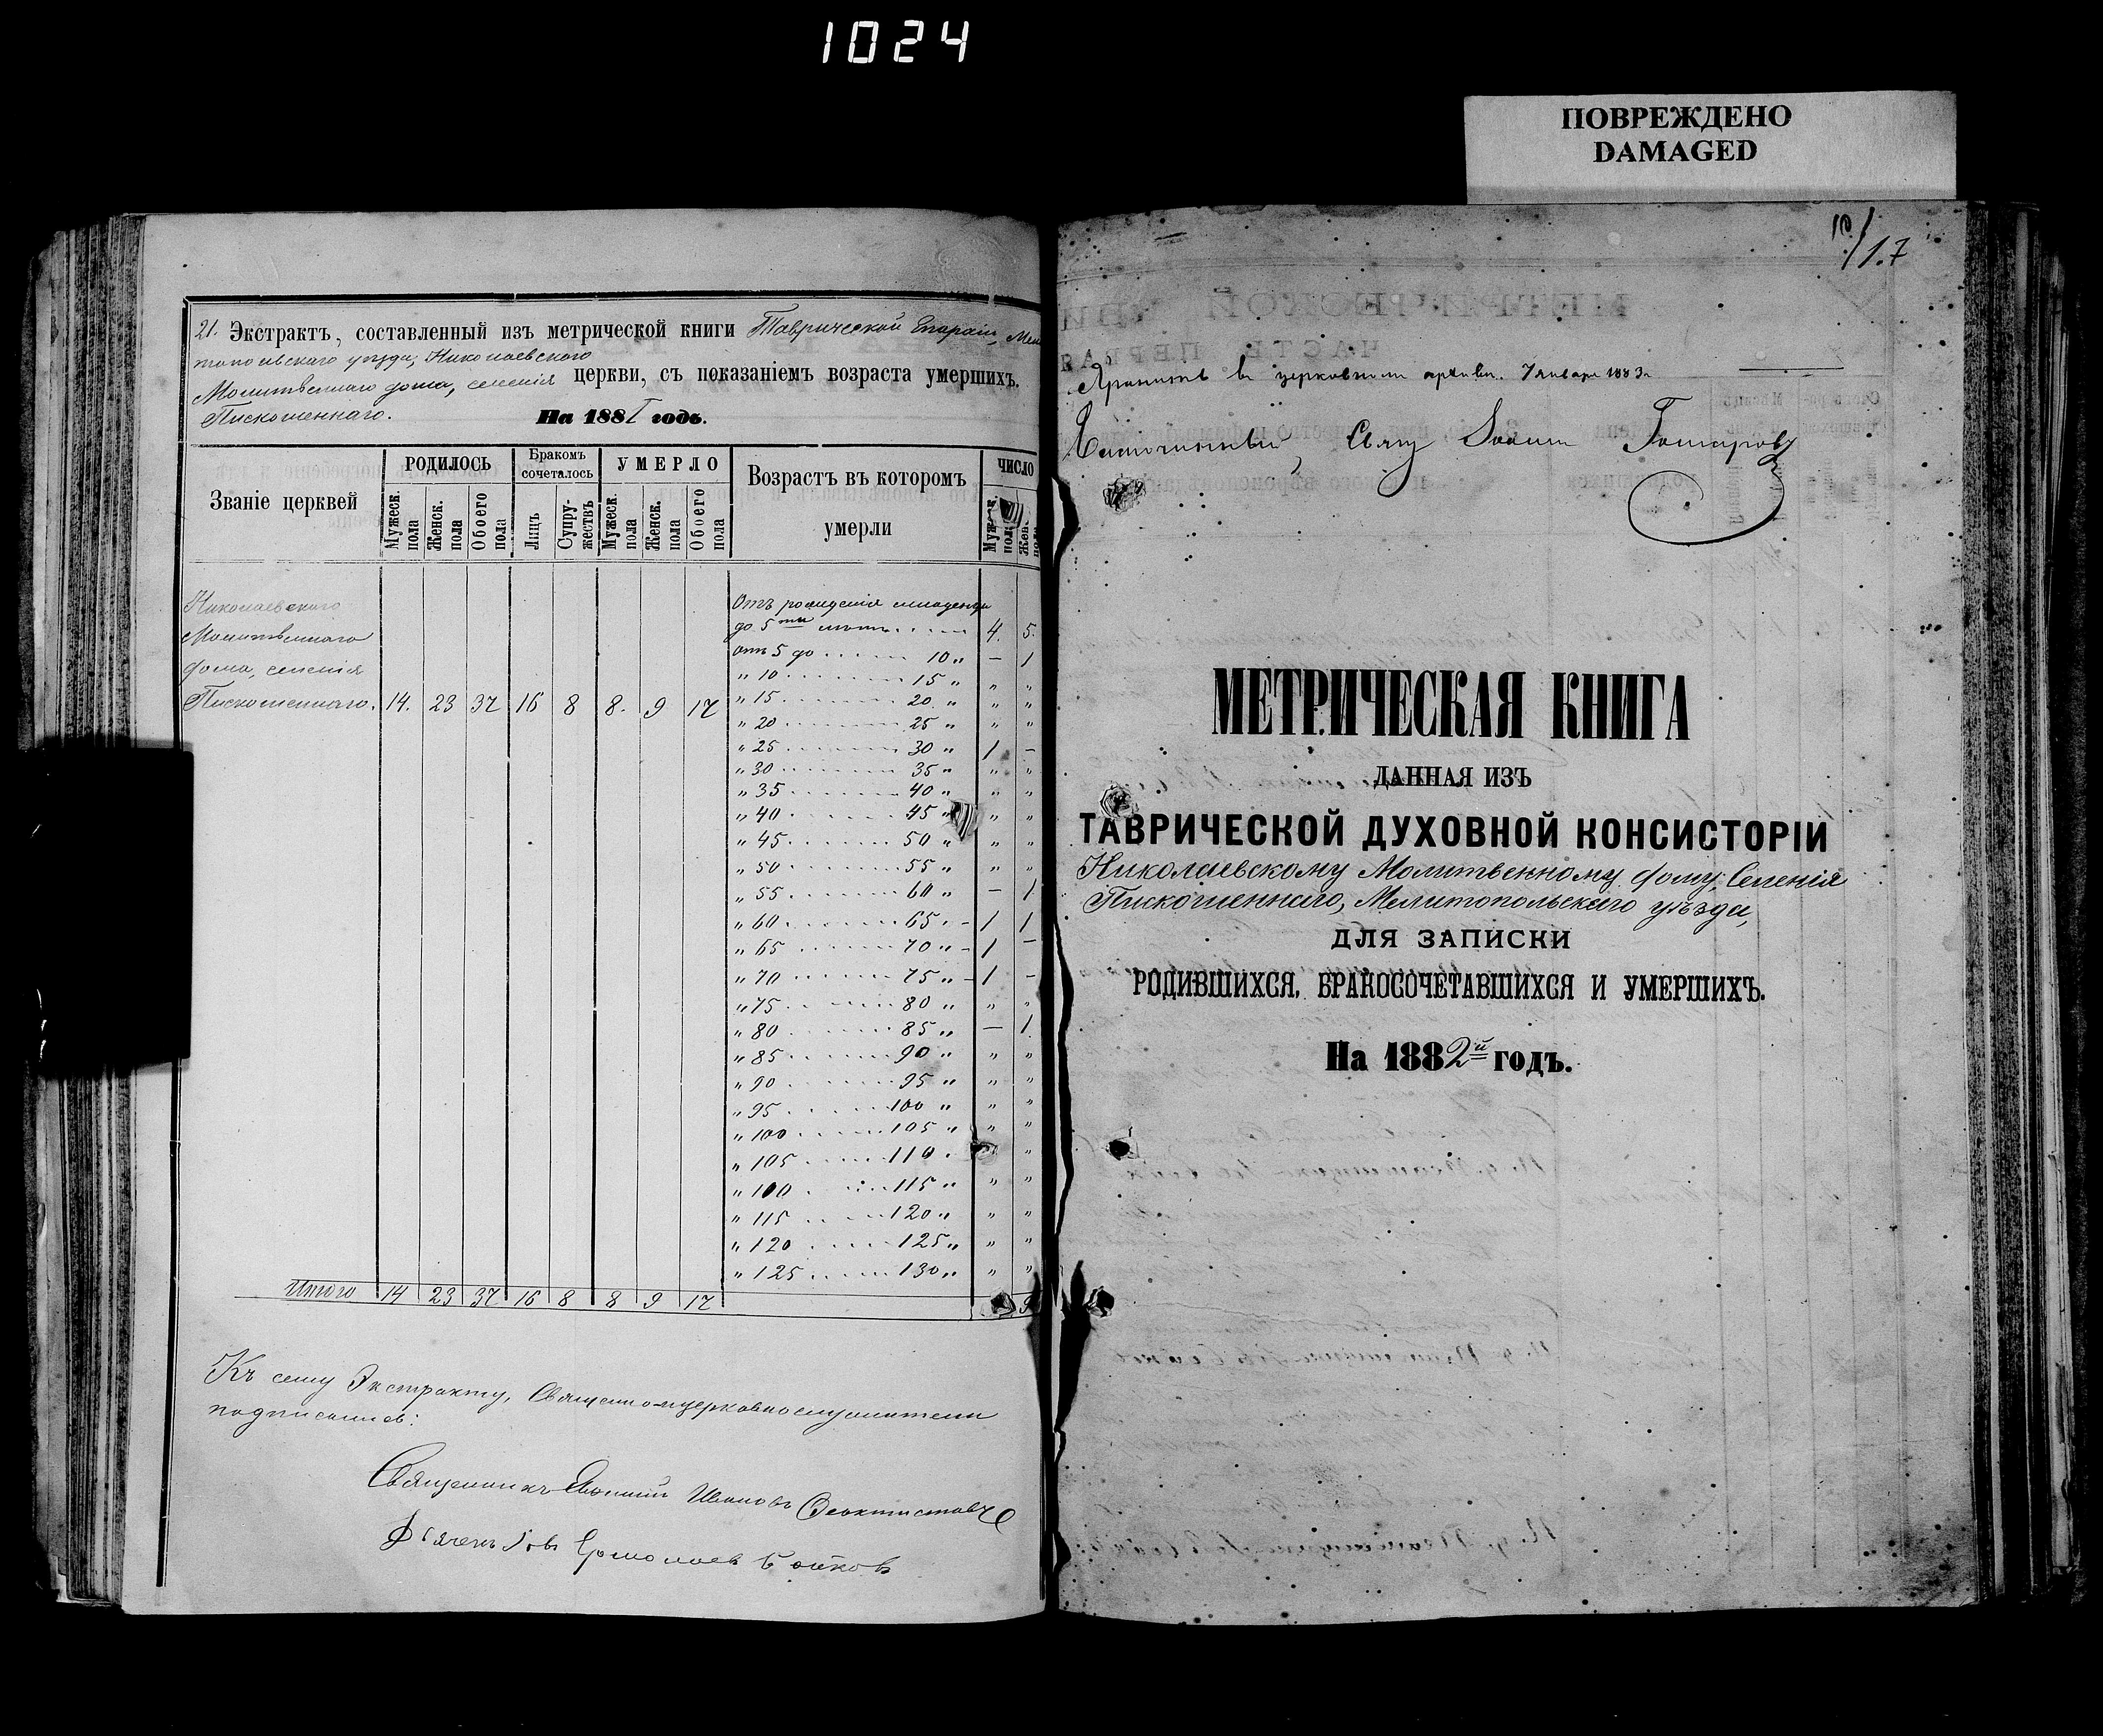 1024
ПОВРЕЖДЕНО
DAMAGED
21. Экстрактъ, составленный изъ метрической книги Таврической Епархіи, Мели
топольскаго уѣзда, Николаевскаго
Молитвеннаго дома, селенія церкви, съ показаніемъ возраста умершихъ.
Пискошеннаго.
На 1881 годъ.
Званіе церквей
РОДИЛОСЬ
Мужеск. пола
Женск. пола
Обоего пола
Бракомъ сочеталось
Лицъ
Супружествъ
УМЕРЛО
Мужеск. пола
Женск. пола
Обоего пола
Возрастъ въ которомъ
умерли
ЧИСЛО
Мужеск. пола
Жен. пола
Николаевскаго
Молитвеннаго
дома, селенія
Пискошеннаго. 14. 23 37 16 8 8. 9 17
Отъ рожденія младенцы
до 5ти лѣтъ 4. 5.
отъ 5 до 10 „ — 1
„ 10 15 „ „ „
„ 15 20 „ „ „
„ 20 25 „ „ „
„ 25 30 „ 1 —
„ 30 35 „ „ „
„ 35 40 „ „ „
„ 40 45 „ „ „
„ 45 50 „ „ „
„ 50 55 „ „ „
„ 55 60 „ — 1
„ 60 65 „ 1 1
„ 65 70 „ 1 —
„ 70 75 „ 1 —
„ 75 80 „ „ „
„ 80 85 „ — 1.
„ 85 90 „ „ „
„ 90 95 „ „ „
„ 95 100 „ „ „
„ 100 105 „ „ „
„ 105 110 „ „
„ 100 115 „ „ „
„ 115 120 „ „ „
„ 120 125 „ „ „
„ 125 130 „ „ „
Итого 14 23 37 16 8 8 9 17 9
Къ сему Экстракту, Священноцерковнослужители
подписались:
Священникъ Іоаннъ Ивановъ Феоктистовъ
Дьячекъ Іовъ Ермолаевъ Бойковъ
10/1.7
Хранить въ церковномъ архивѣ. 7 января 1883 г.
Благочинный, Свящ. Іоаннъ Гончаровъ
МЕТРИЧЕСКАЯ КНИГА
ДАННАЯ ИЗЪ
ТАВРИЧЕСКОЙ ДУХОВНОЙ КОНСИСТОРІИ
Николаевскому Молитвенному дому, Селенія
Пискошеннаго, Мелитопольскаго уѣзда,
ДЛЯ ЗАПИСКИ
РОДИВШИХСЯ, БРАКОСОЧЕТАВШИХСЯ И УМЕРШИХЪ.
На 1882й годъ.